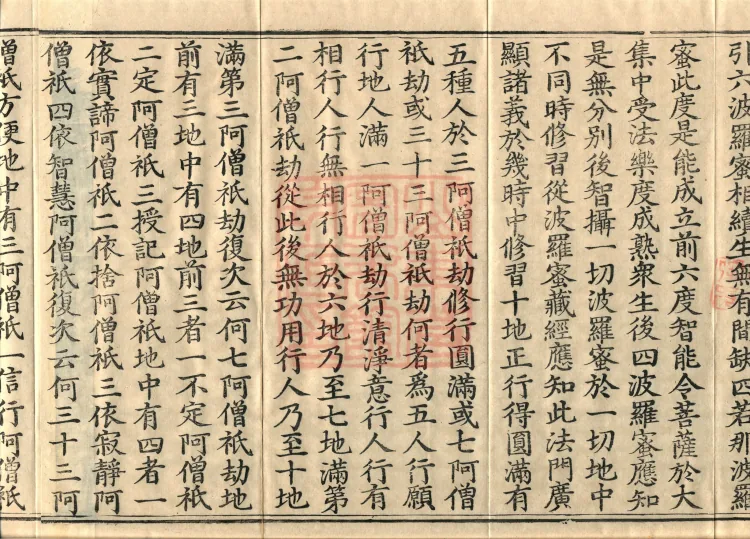 引六波羅蜜相續生無有間缺四若那波羅
蜜此度是能成立前六度智能令菩薩於大
集中受法樂度成熟衆生後四波羅蜜應知
是無分別後智攝一切波羅蜜於一切地中
不同時修習從波羅蜜藏經應知此法門廣
顯諸義於幾時中修習十地正行得圓滿有
五種人於三阿僧祇劫修行圓滿或七阿僧
祇劫或三十三阿僧祇劫何者爲五人行願
行地人滿一阿僧祇劫行清淨意行人行有
相行人行無相行人於六地乃至七地滿第
二阿僧祇劫從此後無功用行人乃至十地
滿第三阿僧祇劫復次云何七阿僧祇劫地
前有三地中有四地前三者一不定阿僧祇
二定阿僧祇三授記阿僧祇地中有四者一
依實諦阿僧祇二依捨阿僧祇三依寂靜阿
僧祇四依智慧阿僧祇復次云何三十三阿
僧祇方便地中有三阿僧祇一信行阿僧祇